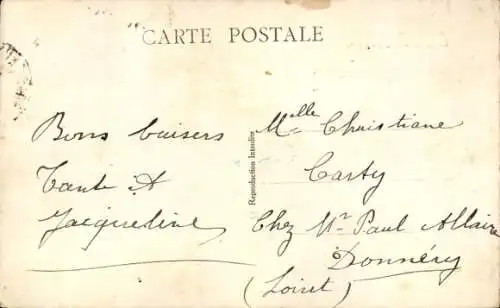 CARTE POSTALE
Bons baisers
Tante A
Jacqueline
Reproduction Interdite
Melle Christiane
Carty
Chez Mr Paul Allaire
Donnéry
(Loiret)